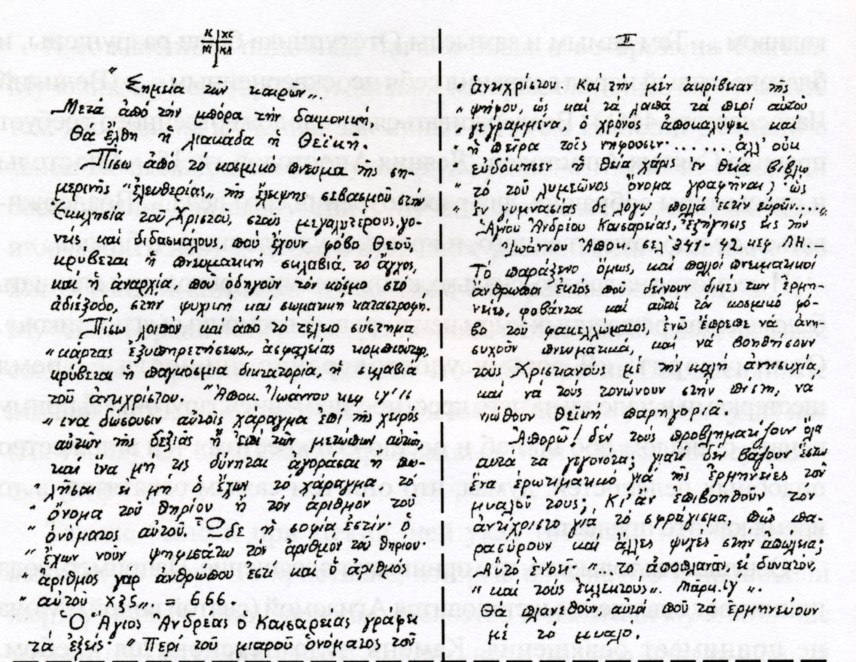 ΙΣ ΧΣ
ΝΙ ΚΑ
"Σημεῖα τῶν καιρῶν".
Μετά ἀπό τήν μπόρα τήν δαιμονική,
Θά ἔλθη ἡ λιακάδα ἡ Θεϊκή.
Πίσω ἀπό τό κοσμικό πνεῦμα τῆς ση-
μερινῆς "ἐλευθερίας", τῆς ἔλλειψης σεβασμοῦ στήν
Ἐκκλησία τοῦ Χριστοῦ, στούς μεγαλυτέρους, γο-
νεῖς καί διδασκάλους, πού ἔχουν φόβο Θεοῦ,
κρύβεται ἡ πνευματική σκλαβιά, τό ἄγχος,
καί ἡ ἀναρχία, πού ὁδηγοῦν τόν κόσμο στό
ἀδιέξοδο, στήν ψυχική καί σωματική καταστροφή.
Πίσω λοιπόν καί ἀπό τό τέλειο σύστημα
"κάρτας ἐξυπηρετήσεως", ἀσφαλείας κομπιοῦτερ,
κρύβεται ἡ παγκόσμια δικτατορία, ἡ σκλαβιά
τοῦ ἀντιχρίστου. Ἀποκ. Ἰωάννου κεφ ιγ'.
"..ἵνα δώσουσιν αὐτοῖς χάραγμα ἐπί τῆς χειρός
" αὐτῶν τῆς δεξιᾶς ἤ ἐπί τῶν μετώπων αὐτῶν,
" καί ἵνα μή τις δύνηται ἀγοράσαι ἤ πω-
" λῆσαι εἰ μή ὁ ἔχων τό χάραγμα, τό
" ὄνομα τοῦ θηρίου ἤ τόν ἀριθμόν τοῦ
" ὀνόματος αὐτοῦ. Ὧδε ἡ σοφία ἐστίν· ὁ
" ἔχων νοῦν ψηφισάτω τόν ἀριθμόν τοῦ θηρίου·
" ἀριθμός γάρ ἀνθρώπου ἐστί· καί ὁ ἀριθμός
" αὐτοῦ χξς"... 666.
Ὁ Ἅγιος Ἀνδρέας ὁ Καισαρείας γράφει
τά ἑξῆς: "Περί τοῦ μιαροῦ ὀνόματος τοῦ
II
" ἀντιχρίστου. Καί τήν μέν ἀκρίβειαν τῆς
" ψήφου, ὡς καί τά λοιπά τά περί αὐτοῦ
" γεγραμμένα, ὁ χρόνος ἀποκαλύψει καί
" ἡ πεῖρα τοῖς νήφουσιν......... ἀλλ' οὐκ
" εὐδόκησεν ἡ Θεία χάρις ἐν θείᾳ βίβλῳ
" τό τοῦ λυμεῶνος ὄνομα γραφῆναι· ὡς
" ἐν γυμνασίας δέ λόγῳ, πολλά ἐστίν εὑρεῖν....
Ἁγίου Ἀνδρέου Καισαρείας, Ἐξήγησις εἰς τήν
Ἰωάννου Ἀποκ. σελ 341. 42. κεφ. ΛΗ.
Τό παράξενο ὅμως, καί πολλοί πνευματικοί
ἄνθρωποι, ἐκτός πού δίνουν δικές των ἑρμη-
νεῖες, φοβᾶνται καί αὐτοί τόν κοσμικό φό-
βο τοῦ φακελλώματος, ἐνῶ ἔπρεπε νά ἀνη-
συχοῦν πνευματικά, καί νά βοηθήσουν
τούς Χριστιανούς μέ τήν καλή ἀνησυχία,
καί νά τούς τονώσουν στήν πίστη, νά
νιώθουν θεϊκή παρηγοριά.
Ἀπορῶ! δέν τούς προβληματίζουν ὅλα
αὐτά τά γεγονότα; γιατί δέν βάζουν ἔστω
ἕνα ἐρωτηματικό γιά τίς ἑρμηνεῖες τοῦ
μυαλοῦ τους; Κι' ἄν ἐπιβοηθοῦν τόν
ἀντίχριστο γιά τό σφράγισμα, πῶς πα-
ρασύρουν καί ἄλλες ψυχές στήν ἀπώλεια;
Αὐτό ἐννοεῖ· "...τό ἀποπλανᾶν, εἰ δυνατόν,
" καί τούς ἐκλεκτούς". Μάρκ. ιγ".
Θά πλανηθοῦν αὐτοί πού τά ἑρμηνεύουν
μέ τό μυαλό.